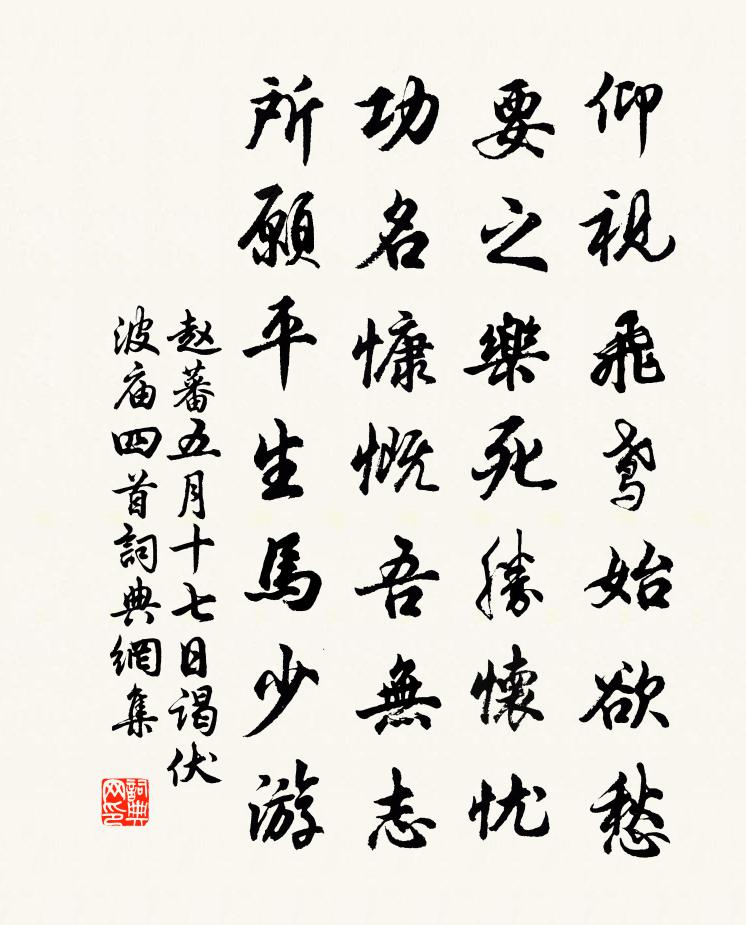 仰視飛鳶始欲愁
要之樂死勝懷忧
功名慷慨吾無志
所願平生馬少游
赵蕃五月十七日谒伏
波庙四首詞典網集
詞典
网印